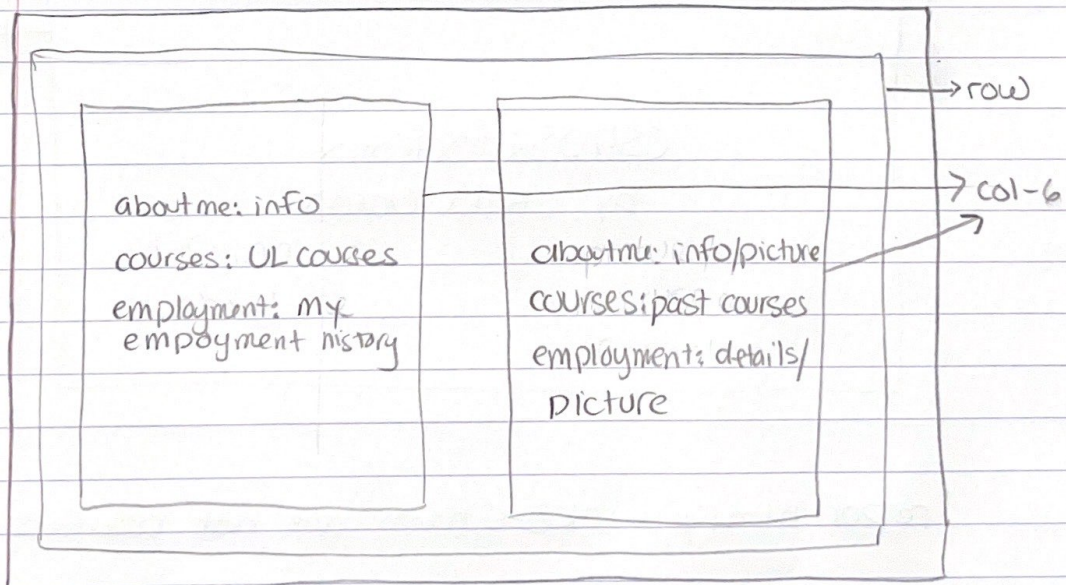 row
col-6
aboutme: info
courses: UL courses
employment: my
empoyment history
aboutme: info/picture
courses: past courses
employment: details/
picture